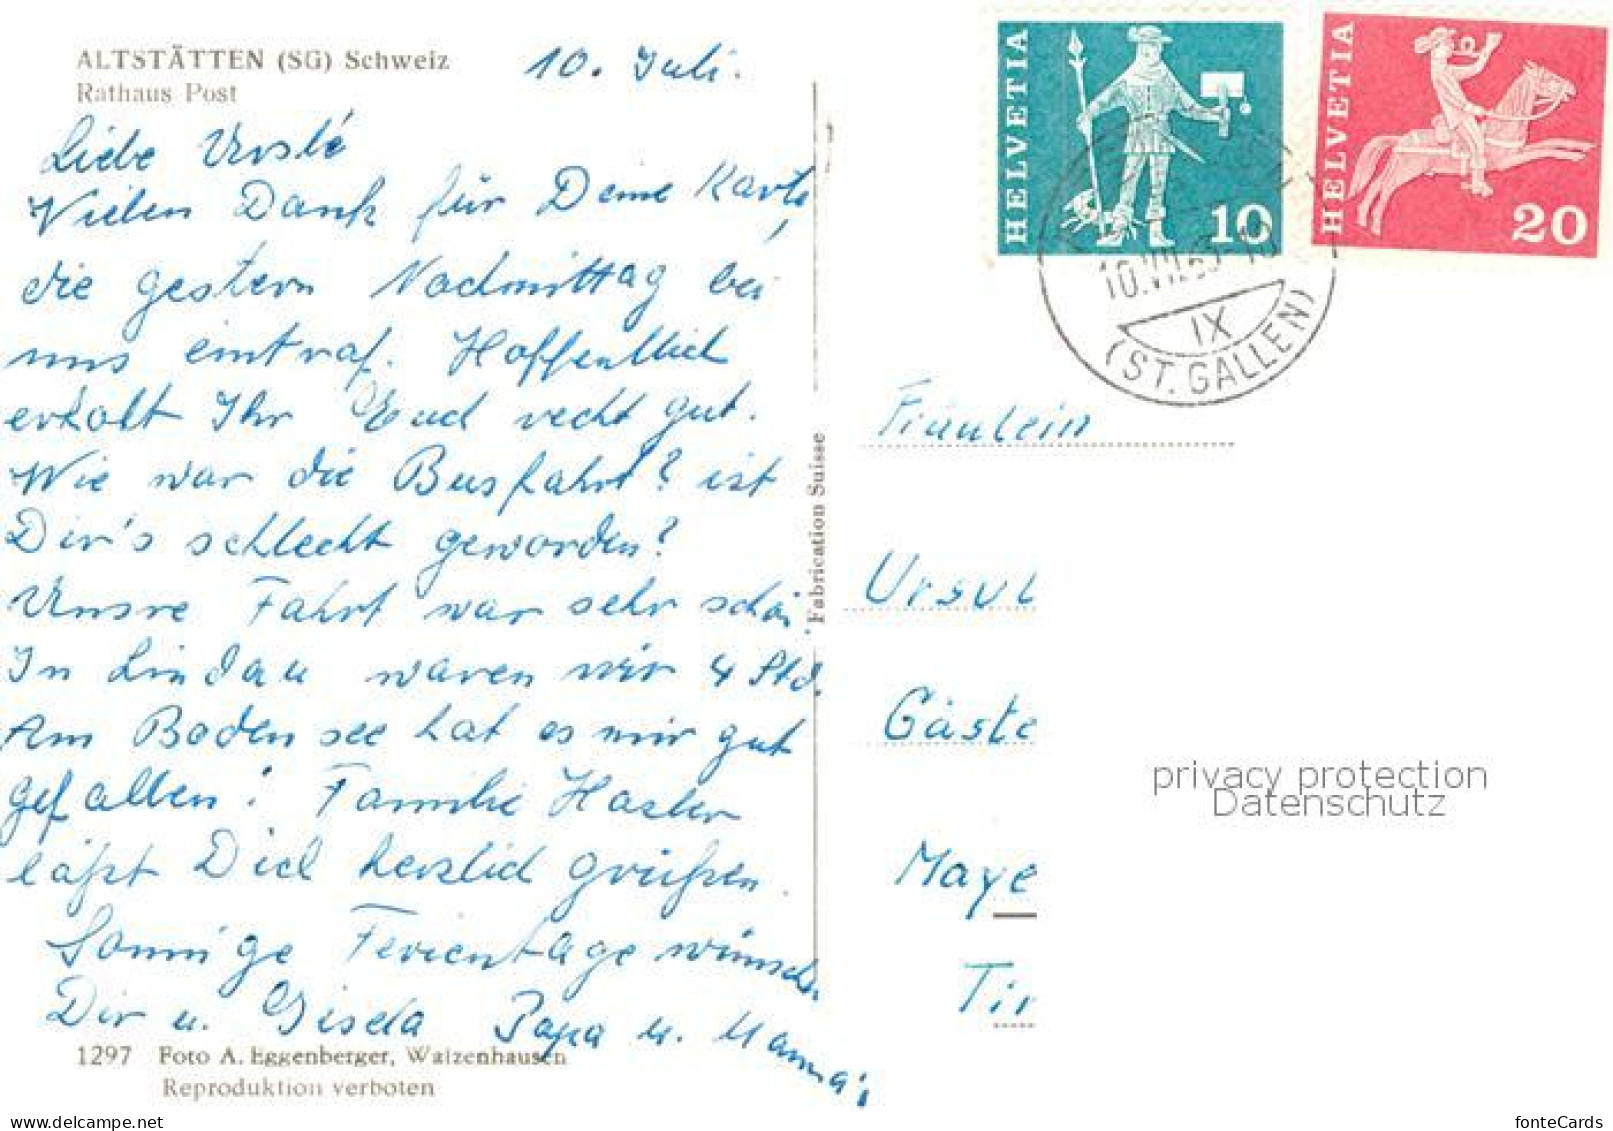 ALTSTÄTTEN (SG) Schweiz
Rathaus Post
10. Juli.
Liebe Urslé
Vielen Dank für Deine Karte,
die gestern Nachmittag bei
uns eintraf. Hoffentlich
erholt Ihr Euch recht gut.
Wie war die Busfahrt? ist
Dir's schlecht geworden?
Unsre Fahrt war sehr schön.
In Lindau waren wir 4 Std.
Am Bodensee hat es mir gut
gefallen! Familie Hasler
läßt Dich herzlich grüßen.
Sonnige Ferientage wünschen
Dir u. Gisela Papa u. Mama
1297 Foto A. Eggenberger, Walzenhausen
Reproduktion verboten
Fabrication Suisse
HELVETIA
10
HELVETIA
20
10.VII.
IX
(ST. GALLEN)
Fräulein
Ursul
Gäste
Maye
Tir
privacy protection
Datenschutz
fonteCards